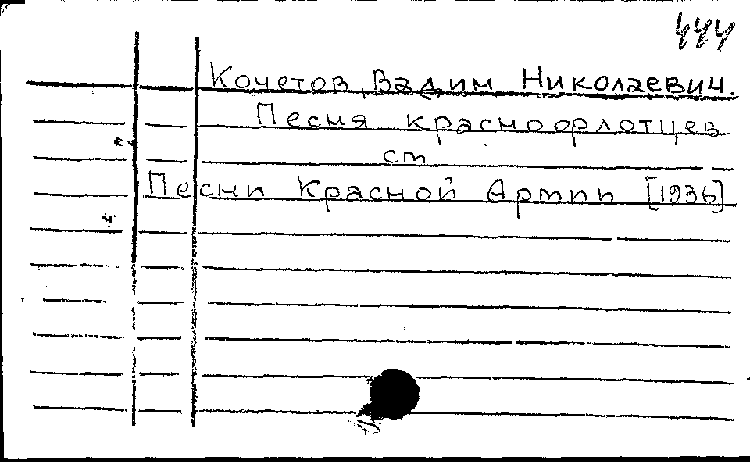 444
Кочетов, Вадим Николаевич.
Песня краснофлотцев
см
Песни Красной Армии [1936]